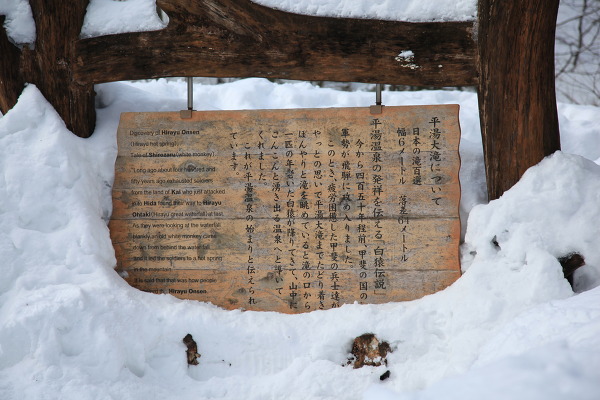 平湯大滝について
日本の滝百選
幅6メートル　落差64メートル
平湯温泉の発祥を伝える「白猿伝説」
今から四百五十年程前、甲斐の国の
軍勢が飛騨に攻め入りました。
このとき、疲労困憊した甲斐の兵士達が
やっとの思いで平湯大滝までたどり着き
ぼんやりと滝を眺めていると滝の口から
一匹の年老いた白猿が降りてきて、山中に
こんこんと湧き出る温泉へと導いて
くれました。
これが平湯温泉の始まりと伝えられ
ています。
Discovery of Hirayu Onsen
(Hirayu hot spring)
Tale of Shirozaru (white monkey)
"Long ago about four hundred and
fifty years ago exhausted soldiers
from the land of Kai who just attacked
into Hida found their way to Hirayu
Ohtaki (Hirayu great waterfall) at last.
As they were looking at the waterfall
blankly, an old white monkey came
down from behind the waterfall
and it led the soldiers to a hot spring
in the mountain."
It is said that that was how people
Hirayu Onsen.